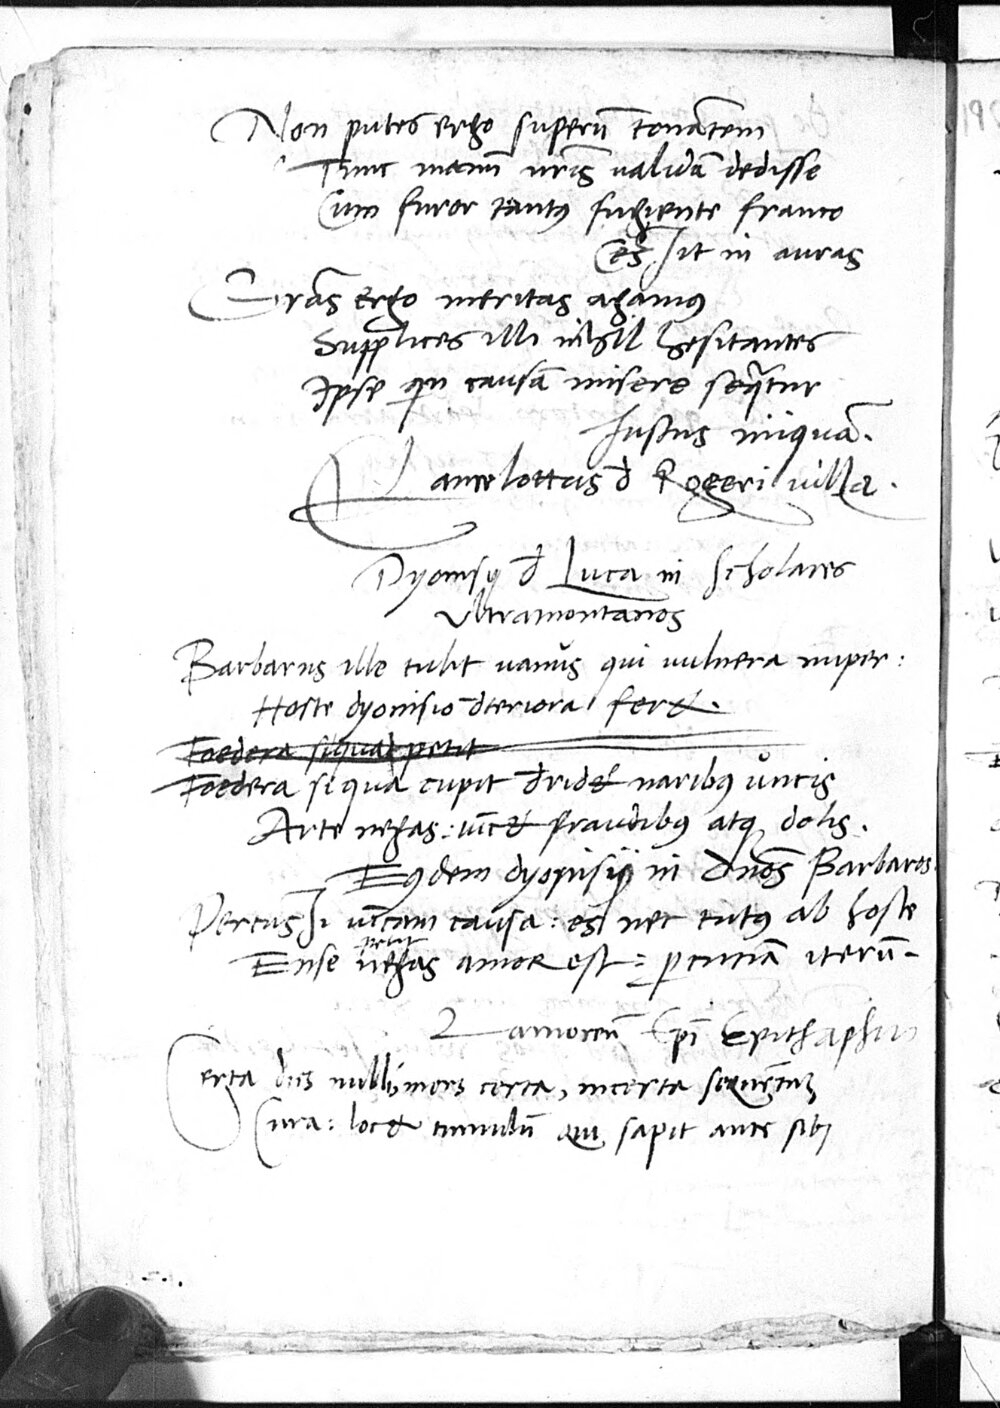 Non putes ergo superū tonātem
Tunc manū nr̄is validā dedisse
Cum furor tantꝰ fugiente franco
Cēs. Sit in auras
Grās ergo meritas agamus
Supplices illi nihil hesitantes
Ipse qn causā misere sequitur
Iustus iniquā.
Lancelottus d̄ Rogeri villa.
Dyonisij d̄ Luca in scholares
Ultramontanos
Barbarus ille tulit vanus qui vulnera nuper:
Hoste dyonisio d̄teriora feret.
Foedera siqua petit
Foedera siqua cupit d̄ridet naribꝰ uncis
Arte negas: vīcet fraudibꝰ atqꝫ dolis.
Eiꝰdem dyonisij in dn̄os Barbaros.
Percus̄ Si causa: es nec tutꝰ ab hoste
Ense negas amor est: ꝑcutiā iterū.
Epī Epithaphiu
Certa dies nulli, mors certa, incerta sequentū
Cura: locet tumulū qui sapit ante sibi